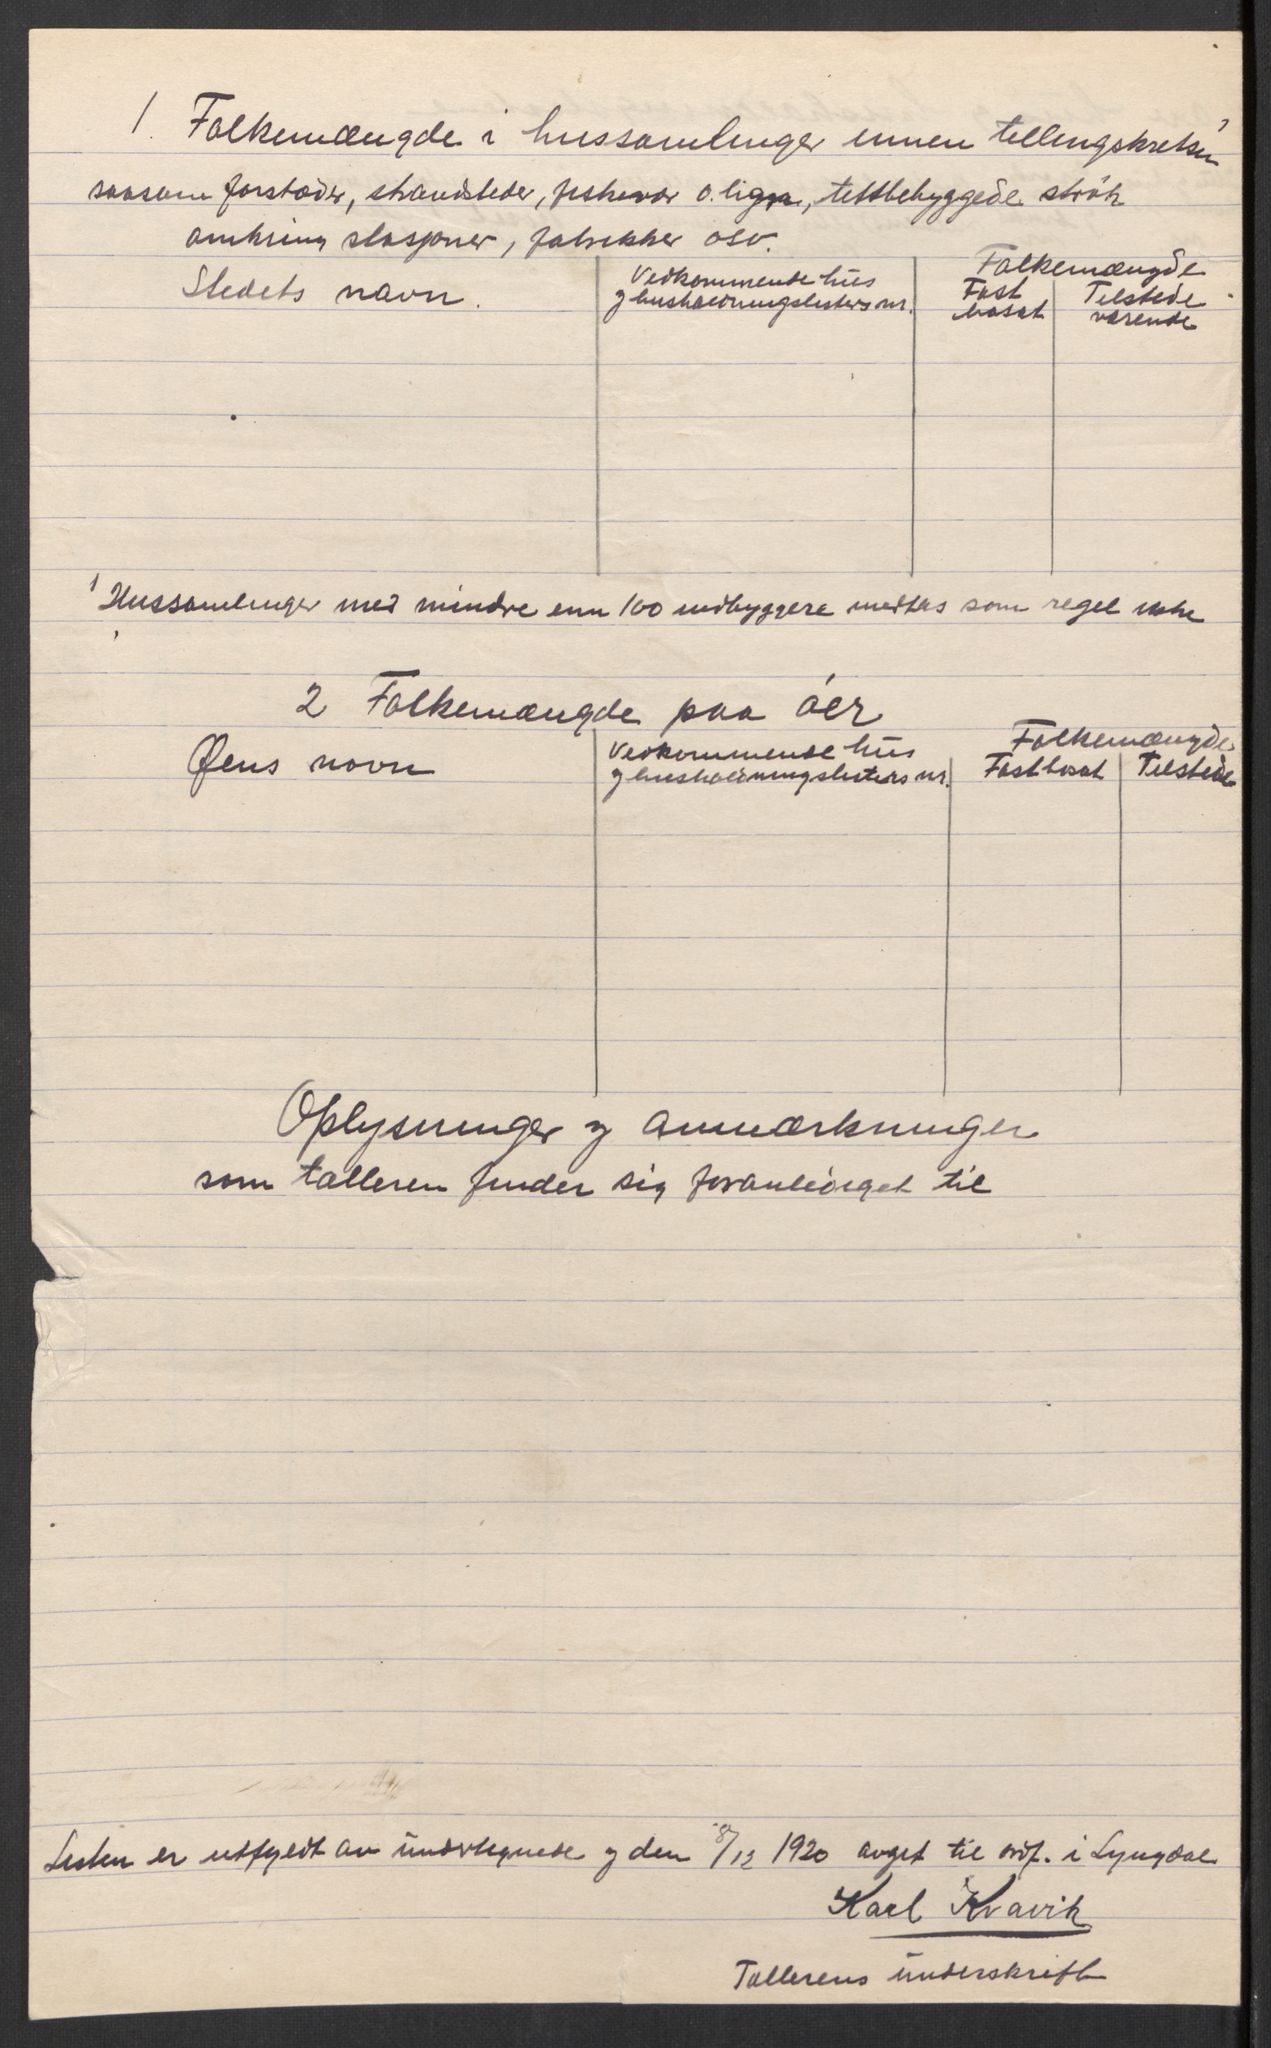 1. Folkemængde i hussamlinger innen tellingskretsen 1
saasom forstæder, strandsteder, fiskevær o. lign, tettbebyggede strök
omkring stasjoner, fabrikker osv.
Stedets navn. Vedkommende hus Folkemængde
og husholdningslisters nr. Fast Tilstede
bosat værende
1 Hussamlinger med mindre enn 100 indbyggere medtas som regel ikke
2 Folkemængde paa öer
Øens navn Vedkommende hus Folkemængde
og husholdningslisters nr. Fast bosat Tilstede
Oplysninger og anmærkninger
som tælleren finder sig foranlediget til
Listen er utfyldt av undertegnede og den 8/12 1920 avgit til ordf. i Lyngdal
Karl Kvavik
Tællerens underskrift